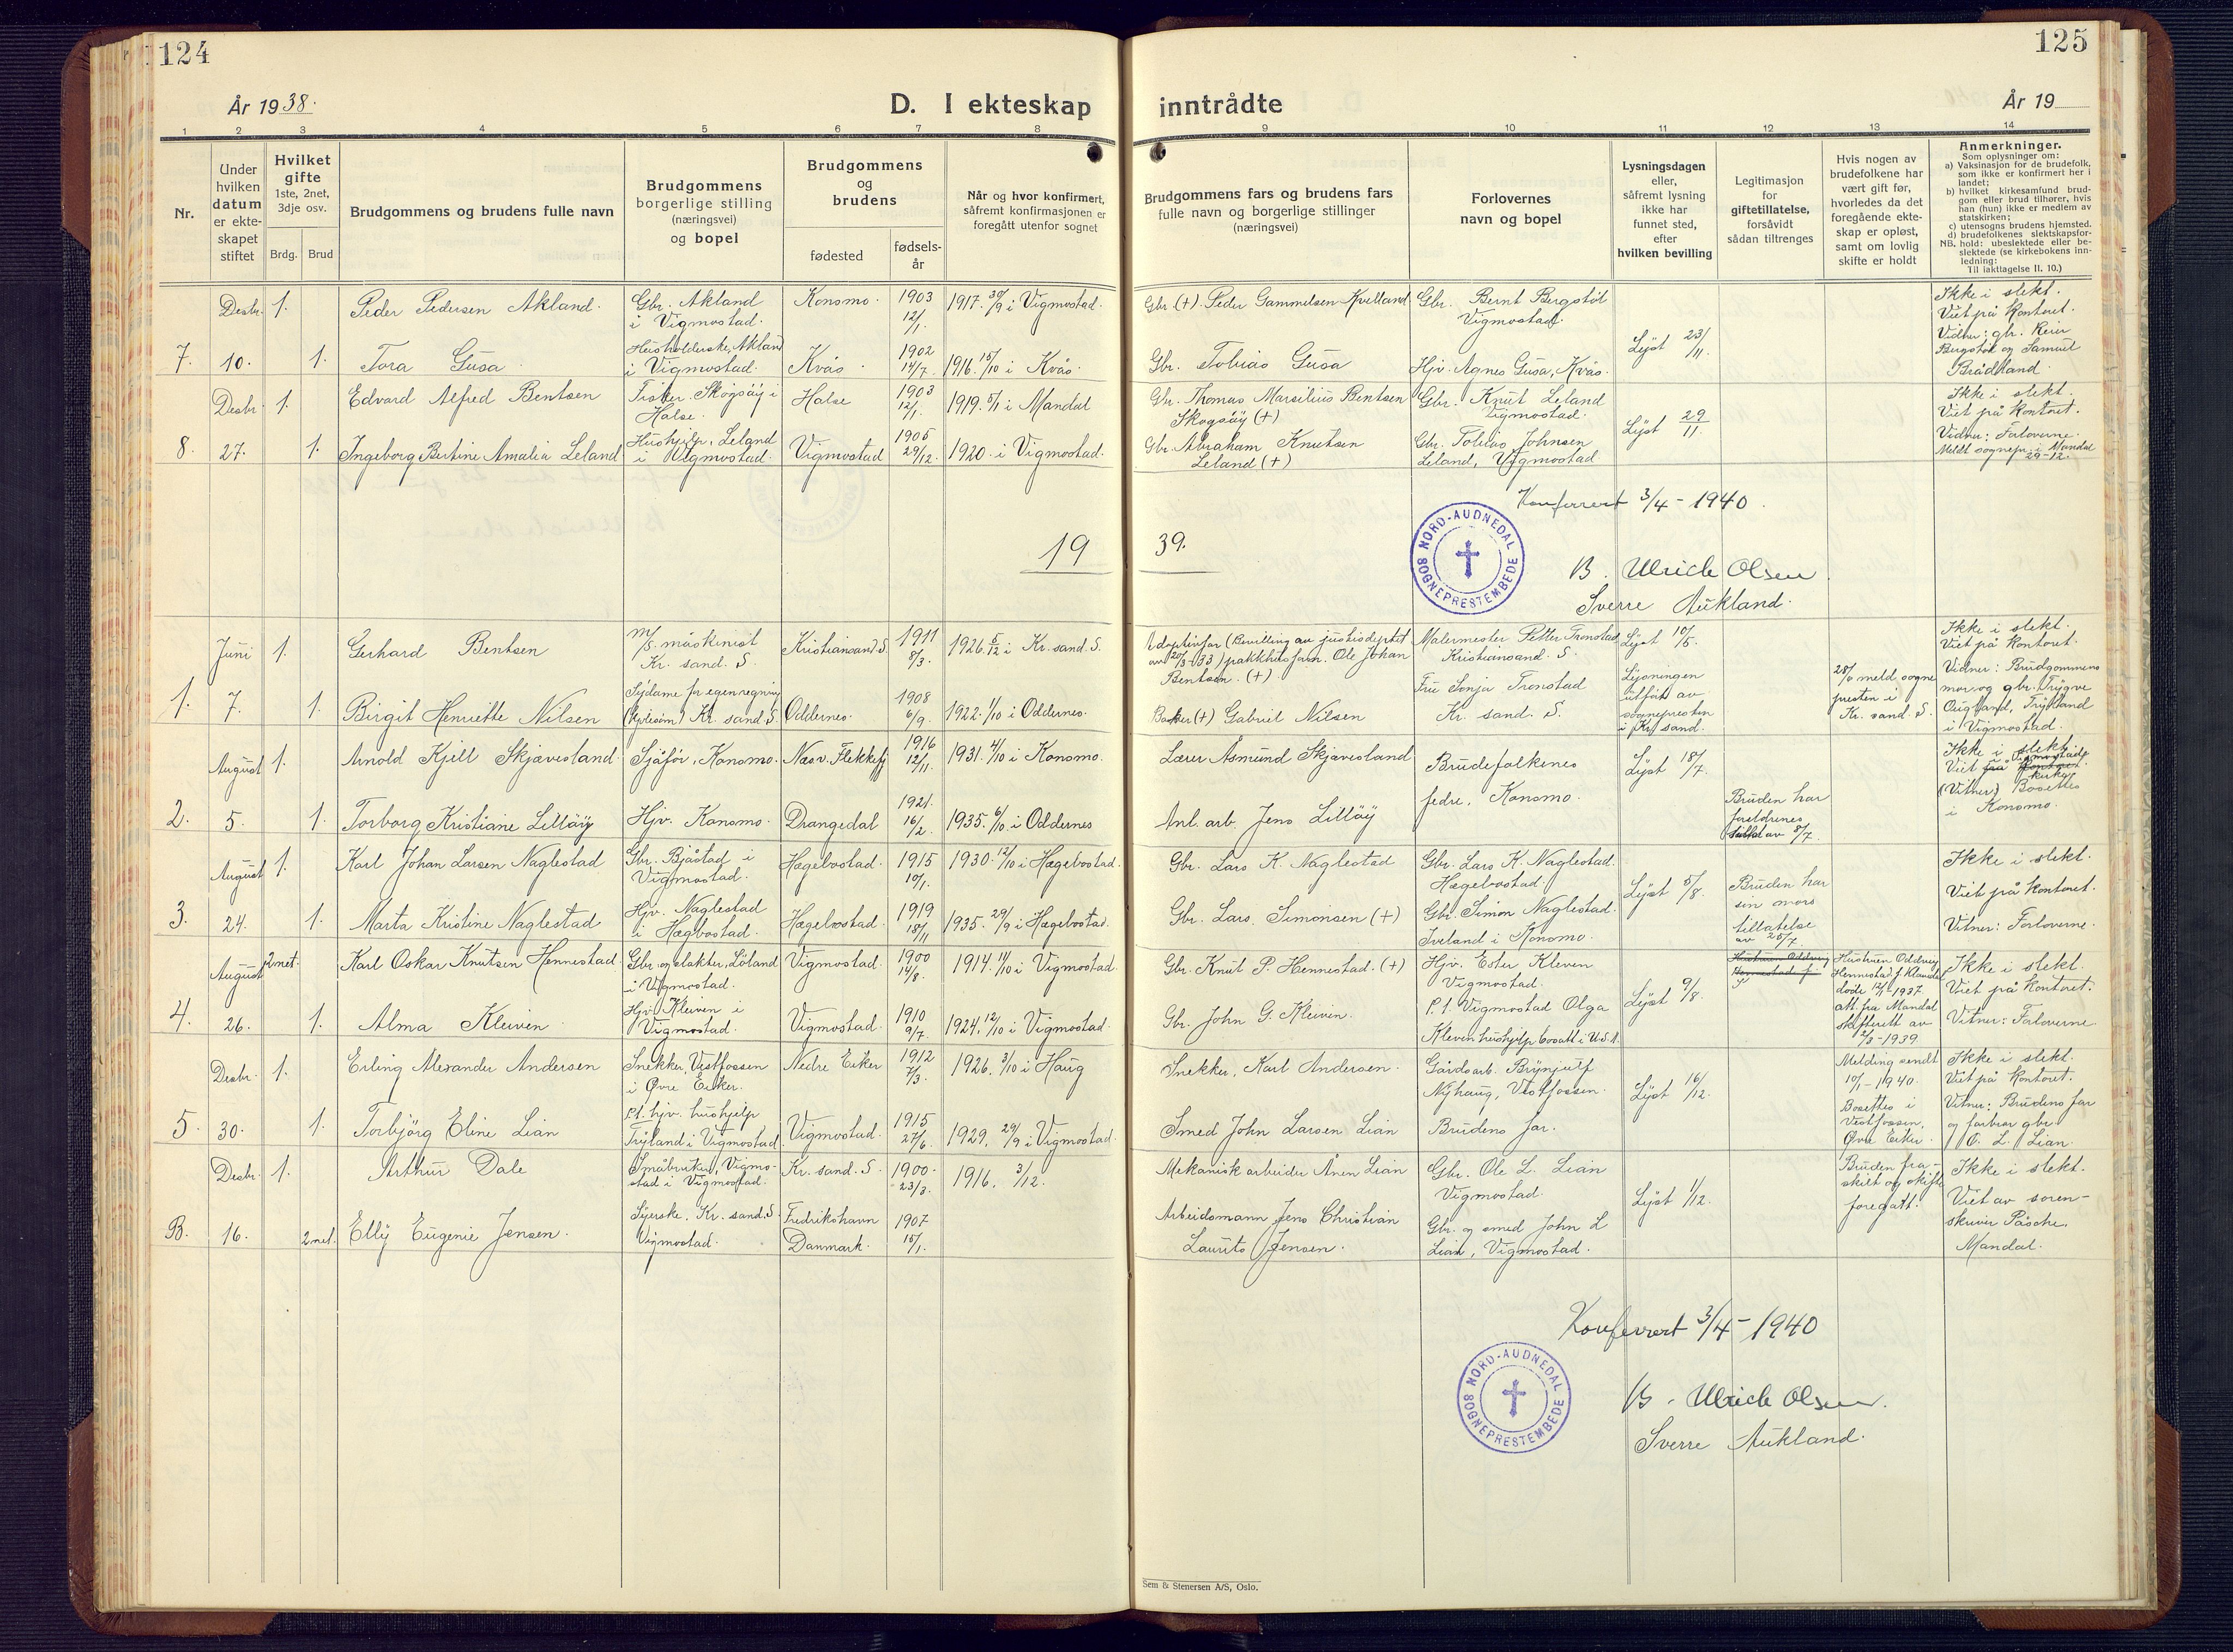 124
125
År 1938.
D. I ekteskap
inntrådte
År 19
1 2 3 4 5 6 7 8 9 10 11 12 13 14
Nr.
Under hvilken datum er ekte-skapet stiftet
Hvilket gifte 1ste, 2net, 3dje osv.
Brdg. Brud
Brudgommens og brudens fulle navn
Brudgommens borgerlige stilling (næringsvei) og bopel
Brudgommens og brudens
fødested
fødsels-år
Når og hvor konfirmert, såfremt konfirmasjonen er foregått utenfor sognet
Brudgommens fars og brudens fars fulle navn og borgerlige stillinger (næringsvei)
Forlovernes navn og bopel
Lysningsdagen eller, såfremt lysning ikke har funnet sted, efter hvilken bevilling
Legitimasjon for giftetillatelse, forsåvidt sådan tiltrenges
Hvis nogen av brudefolkene har vært gift før, hvorledes da det foregående ekte-skap er opløst, samt om lovlig skifte er holdt
Anmerkninger.
Som oplysninger om:
a) Vaksinasjon for de brudefolk, som ikke er konfirmert her i landet;
b) hvilket kirkesamfund brud-gom eller brud tilhører, hvis han (hun) ikke er medlem av statskirken;
c) utensogns brudens hjemsted.
d) brudefolkenes slektskapsfor-hold: ubeslektede eller be-slektede (se kirkebokens inn-ledning:
NB.
Til iakttagelse II. 10.)
Desbr. 1. Peder Pedersen Akland. Gbr. Akland i Vigmostad. Konsmo. 1903 12/1. 1917. 30/9 i Vigmostad. Gbr. (+). Peder Gammelsen Kvelland Gbr. Bernt Bergstøl Vigmostad.
7. 10. 1. Tora Gusa Husholderske, Akland i Vigmostad. Kvås. 1902 14/7. 1916. 15/10 i Kvås. Gbr. Tobias Gusa Hjv. Agnes Gusa, Kvås. Lyst 23/11.
Ikke i slekt. Viet på kontoret. Vidner: gbr. Reier Bergstøl og Samuel Brådland.
Desbr. 1. Edvard Alfred Bentsen Fisker, Skogsøy i Halse. Halse 1903 12/1. 1919. 5/1 i Mandal Gbr. Thomas Marselius Bentsen Skogsøy (+) Gbr. Knut Leland Vigmostad.
8. 27. 1. Ingeborg Bertine Amalia Leland Hushjelp, Leland i Vigmostad. Vigmostad 1905 29/12. 1920 i Vigmostad. Gbr. Abraham Knutsen Leland (+) Gbr. Tobias Johnsen Leland, Vigmostad Lyst 29/11.
Ikke i slekt. Viet på kontoret. Vidner: Forloverne. Meldt sognepr. i Mandal 29-12.
Konferert 3/4 - 1940.
19 39.
NORD-AUDNEDAL SOGNEPRESTEMBEDE
B. Ulrich Olsen
Sverre Aukland.
Juni 1. Gerhard Bentsen M/S maskinist Kr. sand. S. Kristiansand. S. 1911 8/3. 1926. 5/12 i Kr. sand. S. Adoptivfar (Bevilling av justisdeptet av 20/3-33) pakkhusform. Ole Johan Bentsen. (+) Malermester Petter Tronstad Kristiansand. S. Lyst 10/5.
1. 7. 1. Birgit Henriette Nilsen Sydame for egen regning (kjolesøm) Kr. sand. S. Oddernes. 1908 6/9. 1922. 1/10 i Oddernes. Baker (+) Gabriel Nilsen Fru Sonja Tronstad Kr. sand. S. Lysningen utført av sognepresten i Kr. sand.
28/6 meld. sogne presten i Kr. sand. S.
Ikke i slekt. Viet på kontoret. Vidner: Brudgommens mor og gbr. Trygve Augland, Tryland i Vigmostad.
August 1. Arnold Kjell Skjævesland Sjåfør, Konsmo. Nes v. Flekkefj 1916 12/11. 1931. 4/10 i Konsmo. Lærer Åsmund Skjævesland Brudefolkenes fedre, Konsmo. Lyst 18/7.
2. 5. 1. Torborg Kristiane Lilløy Hjv. Konsmo. Drangedal 1921. 16/2. 1935. 6/10 i Oddernes Anl. arb. Jens Lilløy
Bruden har foreldrenes av 8/7.
Ikke i slekt. Viet på kontoret. Vigmostad kirke (Vitner) Bosettes i Konsmo.
August 1. Karl Johan Larsen Naglestad Gbr. Bjåstad i Vigmostad. Hægebostad. 1915 10/1. 1930. 12/10 i Hægebostad. Gbr. Lars K. Naglestad Gbr. Lars K. Naglestad. Hægebostad.
3. 24. 1. Marta Kristine Naglestad Hjv. Naglestad i Hægbostad. Hægebostad. 1919 18/11 1935. 29/9 i Hægebostad. Gbr. Lars Simonsen (+) Gbr. Simon Naglestad. Iveland i Konsmo. Lyst 5/8. Bruden har sin mors tillatelse av 25/7
Ikke i slekt. Viet på kontoret. Vitner: Forloverne.
August 2net. Karl Oskar Knutsen Hennestad Gbr. og slakter, Løland i Vigmostad. Vigmostad. 1900 14/8. 1914. 11/10 i Vigmostad Gbr. Knut P. Hennestad. (+) Hjv. Ester Kleven Vigmostad.
4. 26. 1. Alma Kleiven Hjv. Kleiven i Vigmostad. Vigmostad. 1910 9/7. 1924. 12/10 i Vigmostad. Gbr. John G. Kleiven. P.t. Vigmostad Olga Kleven hushjelp bosatt i U.S.A. Lyst 9/8.
Hustruen Oddveig Hennestad f.
Hustruen Oddveig Hennestad f. Kland døde 12/1 1937. att. fra Mandal skifterett av 2/3-1939
Ikke i slekt. Viet på kontoret. Vitner: Forloverne
Desbr. 1. Erling Alexander Andersen Snekker, Vestfossen i Øvre Eiker. Nedre Eiker 1912 7/3. 1926. 3/10 i Haug Snekker, Karl Andersen. Gårdsarb. Brynjulf Nyhaug, Vestfossen.
5. 30. 1. Torbjørg Eline Lian P.t. hjv. hushjelp Tryland i Vigmostad Vigmostad. 1915 27/6. 1929. 29/9 i Vigmostad. Smed John Larsen Lian Brudens far. Lyst 16/12.
Melding sendt 10/1-1940. Bosettes i Vestfossen, Øvre Eiker.
Ikke i slekt. Viet på kontoret. Vitner: Brudens far og farbror gbr. O. L. Lian.
Desbr. 1. Arthur Dale Småbruker, Vigmo-stad i Vigmostad. Kr. sand. S. 1900. 23/3. 1916. 3/12. Mekanisk arbeider Ånen Lian Gbr. Ole L. Lian Vigmostad.
B. 16. 2net. Elly Eugenie Jensen. Syerske. Kr. sand. S. Vigmostad. Fredrikshavn Danmark. 1907 15/1. Arbeidsmann Jens Christian Laurits Jensen. Gbr. og smed John L Lian, Vigmostad. Lyst 1/12.
Bruden fra-skilt og skifte foregått.
Ikke i slekt. Viet av soren-skriver Påsche, Mandal.
Konferert 3/4 - 1940
NORD-AUDNEDAL SOGNEPRESTEMBEDE
B. Ulrich Olsen.
Sverre Aukland.
Sem & Stenersen A/S, Oslo.